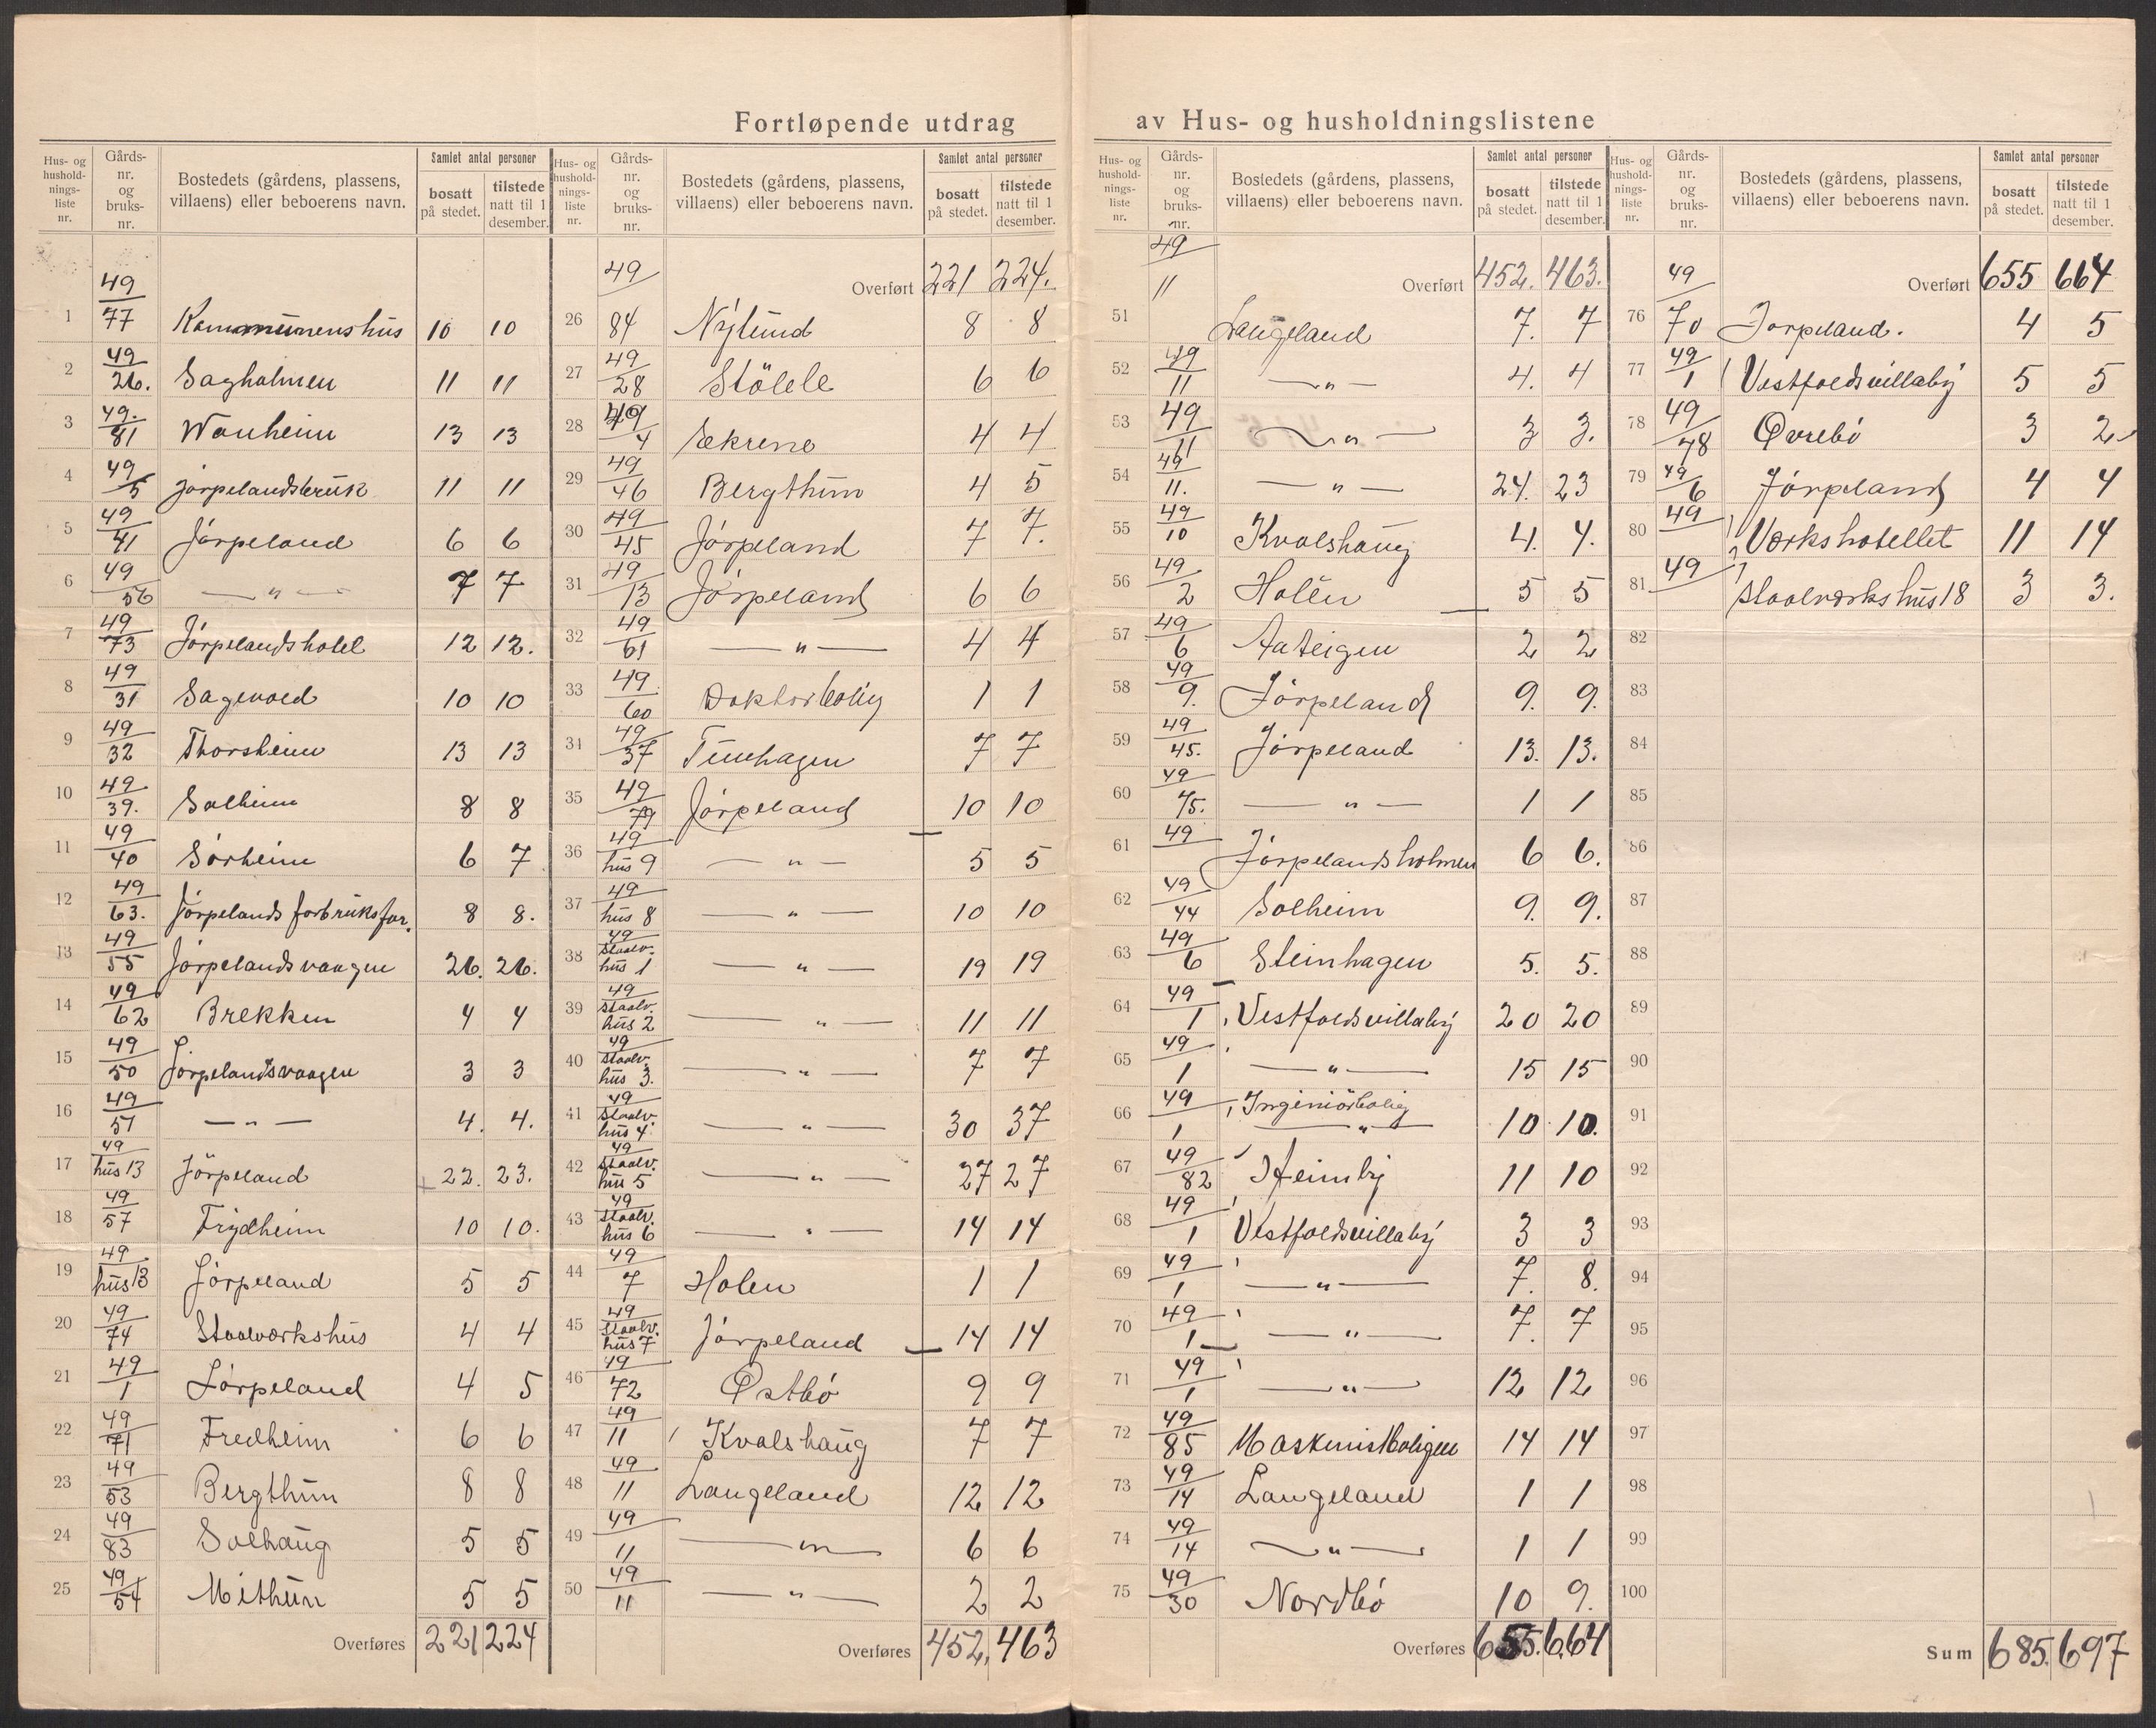 Fortløpende utdrag av Hus- og husholdningslistene
Hus- og husholdningsliste nr. | Gårds-nr. og bruks-nr. | Bostedets (gårdens, plassens, villaens) eller beboerens navn. | Samlet antal personer bosatt på stedet. | tilstede natt til 1 desember.
1 49/77 Kommunenshus 10 10
2 49/26. Sagholmen 11 11
3 49./81 Wanheim 13 13
4 49/5 Jörpelandsbruk 11 11
5 49/41 Jörpeland 6 6
6 49/56 — " — 7 7
7 49/73 Jörpelandshotel 12 12.
8 49/31 Sagevold 10 10
9 49/32 Thorsheim 13 13
10 49/39. Solheim 8 8
11 49/40 Sörheim 6 7
12 49/63. Jörpelands forbruksfor. 8 8.
13 49/55 Jörpelandsvaagen 26. 26.
14 49/62 Brekken 4 4
15 49/50 Jörpelandsvaagen 3 3
16 49/51 — " — 4. 4.
17 49/hus 13 Jörpeland 22. 23.
18 49/57 Frydheim 10 10.
19 49/hus 13 Jörpeland 5 5
20 49/74 Staalværkshus 4 4
21 49/1 Jörpeland 4 5
22 49/71 Fredheim 6 6
23 49/53 Bergthun 8 8
24 49/83 Solhaug 5 5
25 49/54 Mithun 5 5
Overføres 221 224
Hus- og husholdningsliste nr. | Gårds-nr. og bruks-nr. | Bostedets (gårdens, plassens, villaens) eller beboerens navn. | Samlet antal personer bosatt på stedet. | tilstede natt til 1 desember.
Overført 221 224.
26 49/84 Nylund 8 8
27 49/28 Stölele 6 6
28 49/4 Sekrene 4 4
29 49/46 Bergthun 4 5
30 49/45 Jörpeland 7 7.
31 49/13 Jörpeland 6 6
32 49/61 — " — 4 4
33 49/60 Doktorbolig 1 1
34 49/37 Tunhagen 7 7
35 49/79 Jörpeland 10 10
36 49/hus 9 — " — 5 5
37 49/hus 8 — " — 10 10
38 49/Staalv. hus 1 — " — 19 19
39 49/Staalv. hus 2 — " — 11 11
40 49/Staalv. hus 3. — " — 7 7
41 49/Staalv. hus 4 — " — 30 37
42 49/Staalv. hus 5 — " — 27 27
43 49/Staalv. hus 6 — " — 14 14
44 49/7 Holen 1 1
45 49/Staalv. hus 7 Jörpeland 14 14
46 49/72 Østbö 9 9
47 49/11 Kvalshaug 7 7
48 49/11 Langeland 12 12
49 49/11 — " — 6 6
50 49/11 — " — 2 2
Overføres 452. 463
Hus- og husholdningsliste nr. | Gårds-nr. og bruks-nr. | Bostedets (gårdens, plassens, villaens) eller beboerens navn. | Samlet antal personer bosatt på stedet. | tilstede natt til 1 desember.
Overført 452. 463.
51 49/11 Langeland 7. 7
52 49/11 — " — 4. 4
53 49/11 — " — 3 3.
54 49/11. — " — 24. 23
55 49/10 Kvalshaug 4. 4.
56 49/2 Holen 5 5
57 49/6 Aateigen 2 2
58 49/9. Jörpeland 9. 9.
59 49/45. Jörpeland 13. 13.
60 49/75. — " — 1 1
61 49 Jörpelandsholmen 6 6.
62 49/44 Solheim 9. 9.
63 49/6 Steinhagen 5. 5.
64 49/1 Vestfoldsvillaby 20 20
65 49/1 — " — 15 15
66 49/1 Ingeniörbolig — " — 10 10.
67 49/82 Heimby 11 10
68 49/1 Vestfoldsvillaby 3 3
69 49/1 — " — 7. 8.
70 49/1 — " — 7. 7
71 49/1 — " — 12 12
72 49/85 Maskinistboligen 14 14
73 49/14 Langeland 1 1
74 49/14 — " — 1 1
75 49/30 Nordbö 10 9.
Overføres 655. 664
Hus- og husholdningsliste nr. | Gårds-nr. og bruks-nr. | Bostedets (gårdens, plassens, villaens) eller beboerens navn. | Samlet antal personer bosatt på stedet. | tilstede natt til 1 desember.
Overført 655 664
76 49/70 Jorpeland. 4 5
77 49/1 Vestfoldsvillaby 5 5
78 49/48 Øvrebö 3 2
79 49/6 Jörpeland 4 4
80 49 Værkshotellet 11 14
81 49 Staalværkshus 18 3 3.
82
83
84
85
86
87
88
89
90
91
92
93
94
95
96
97
98
99
100
Sum 685. 697